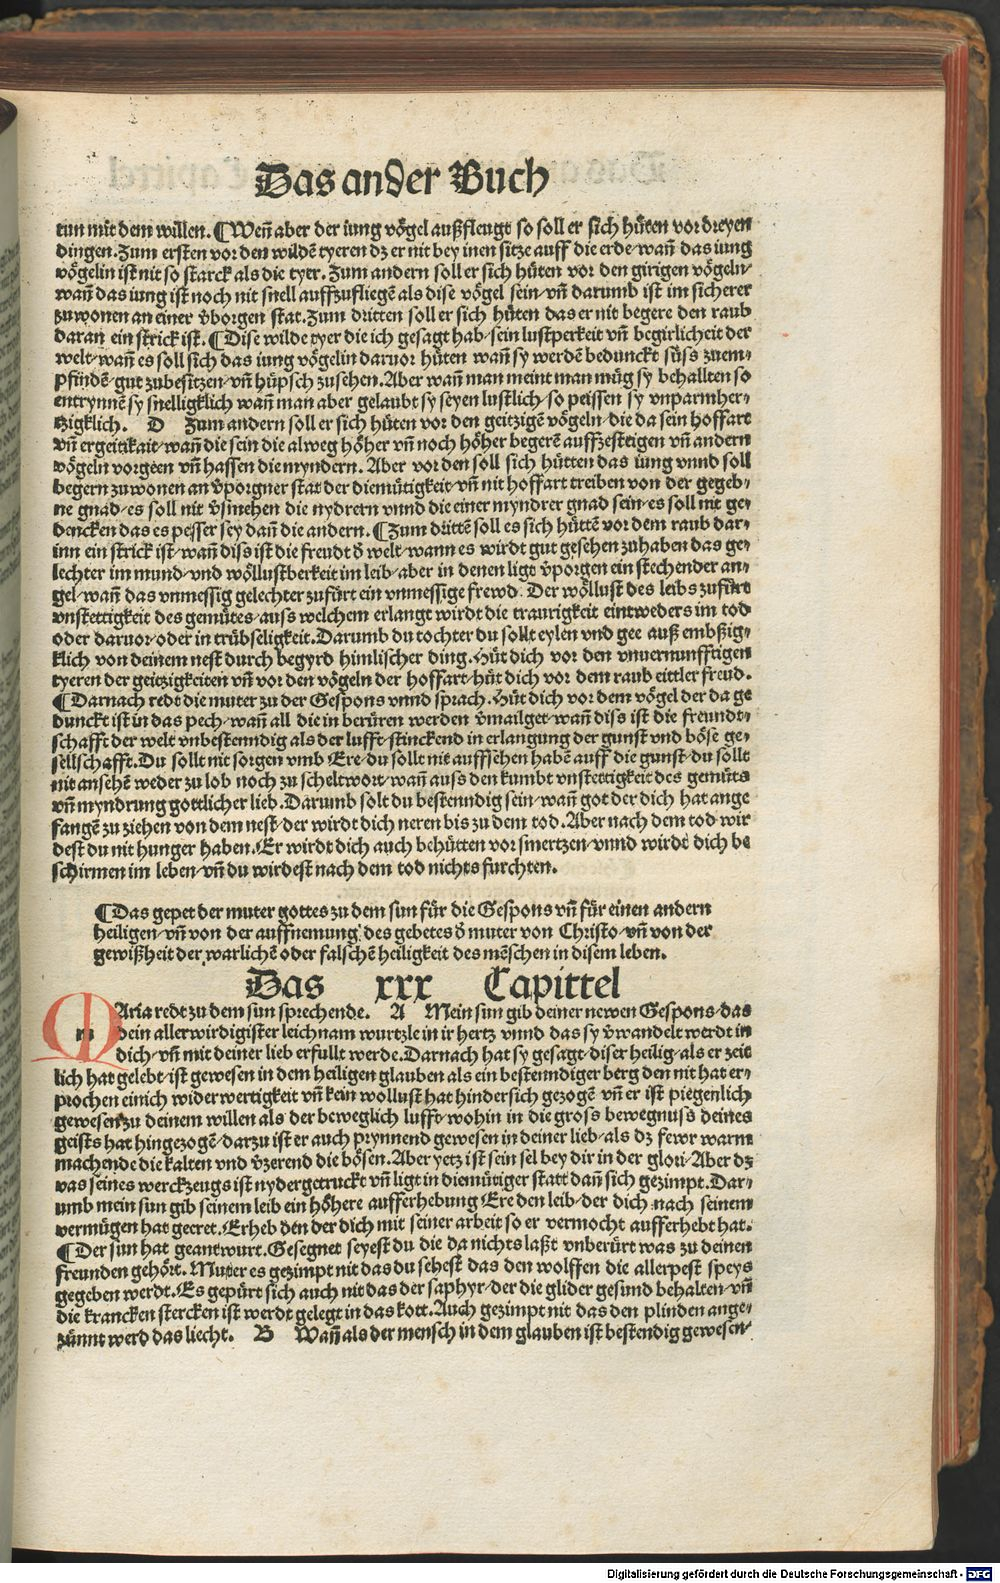 Das ander Buch
tun mit dem willen. ¶ Weñ aber der iung vögel außfleugt so soll er sich hüten vor dreyen
dingen. Zum ersten vor den wildē tyeren dz er nit bey inen sitze auff die erde/ wañ das iung
vögelin ist nit so starck als die tyer. Zum andern soll er sich hüten vor den girigen vögeln/
wañ das iung ist noch nit snell auffzufliegē als dise vögel sein/ vñ darumb ist im sicherer
zu wonen an einer v̄borgen stat. Zum dritten soll er sich hüten das er nit begere den raub
daran ein strick ist. ¶ Dise wilde tyer die ich gesagt hab/ sein lustperkeit vñ begirlicheit der
welt/ wañ es soll sich das iung vögelin daruor hüten wañ sy werdē bedunckt süss zu em/
pfindē/ gut zubesitzen/ vñ hüpsch zu sehen. Aber wañ man meint man müg sy behallten so
entrynnē sy snelligklich wañ man aber gelaubt sy seyen lustlich/ so peissen sy vnparmher/
tzigklich. D Zum andern soll er sich hüten vor den geitzigē vögeln/ die da sein hoffart
vñ ergeitikait/ wañ die sein die alweg höher vñ noch höher begerē auffzesteigen vñ andern
vögeln vorgeen vñ hassen die myndern. Aber vor den soll sich hütten das iung vnnd soll
begern zu wonen an v̄porgner stat der diemütigkeit/ vñ nit hoffart treiben von der gegeb/
ne gnad/ es soll nit v̄smehen die nydrern vnnd die einer myndrer gnad sein/ es soll nit ge/
dencken das es pesser sey dañ die andern. ¶ Zum drittē soll es sich hüttē vor dem raub dar/
inn ein strick ist/ wañ diss ist die freudt d̄ welt/ wann es wirdt gut gesehen zuhaben das ge/
lechter im mund/ vnd wöllustberkeit im leib/ aber in denen ligt v̄porgen ein stechender an/
gel/ wañ das vnmessig gelechter zufürt ein vnmessige frewd. Der wöllust des leibs zufürt
vnstettigkeit des gemütes/ auss welchem erlangt wirdt die traurigkeit eintweders im tod
oder daruor/ oder in trübseligkeit. Darumb du tochter du sollt eylen vnd gee auß embßig/
klich von deinem nest durch begyrd himlischer ding. Hüt dich vor den vnuernunfftigen
tyeren der geitzigkeiten vñ vor den vögeln der hoffart/ hüt dich vor dem raub eittler freud.
¶ Darnach redt die muter zu der Gespons vnnd sprach. Hüt dich vor dem vögel der da ge
dunckt ist in das pech/ wañ all die in berüren werden v̄mailget/ wañ diss ist die freundt/
schafft der welt vnbestenndig als der lufft/ stinckend in erlangung der gunst vnd böse ge/
sellschafft. Du sollt nit sorgen vmb Ere/ du sollt nit auffsehen habē auff die gunst/ du sollt
nit ansehē weder zu lob noch zu scheltwort/ wañ auss den kumbt vnstettigkeit des gemüts
vñ myndrung gottlicher lieb. Darumb solt du bestenndig sein/ wañ got der dich hat ange
fangē zu ziehen von dem nest/ der wirdt dich neren bis zu dem tod. Aber nach dem tod wir
dest du nit hunger haben. Er wirdt dich auch behütten vor smertzen/ vnnd wirdt dich be
schirmen im leben/ vñ du wirdest nach dem tod nichts furchten.
¶ Das gepet der muter gottes zu dem sun für die Gespons vñ für einen andern
heiligen/ vñ von der auffnemung des gebetes d̄ muter von Christo/ vñ von der
gewißheit der warlichē oder falschē heiligkeit des mēschen in disem leben.
Das xxx Capittel
MAria redt zu dem sun sprechende. A Mein sun gib deiner newen Gespons/ das
m dein allerwirdigister leichnam wurtzle in ir hertz vnnd das sy v̄wandelt werdt in
dich/ vñ mit deiner lieb erfullt werde. Darnach hat sy gesagt/ diser heilig/ als er zeit
lich hat gelebt/ ist gewesen in dem heiligen glauben als ein bestenndiger berg den nit hat er/
prochen einich widerwertigkeit vñ kein wollust hat hindersich gezogē vñ er ist piegenlich
gewesen zu deinem willen als der beweglich lufft/ wohin in die gross bewegnuss deines
geists hat hingezogē/ darzu ist er auch prynnend gewesen in deiner lieb/ als dz fewr warm
machende die kalten vnd v̄zerend die bösen. Aber yetz ist sein sel bey dir in der glori/ Aber dz
vas seines werckzeugs ist nydergetruckt vñ ligt in diemütiger statt dañ sich gezimpt. Dar/
umb mein sun gib seinem leib ein höhere aufferhebung Ere den leib/ der dich nach seinem
vermügen hat geeret. Erheb den der dich mit seiner arbeit so er vermocht aufferhebt hat.
¶ Der sun hat geantwurt. Gesegnet seyest du die da nichts laßt vnberürt was zu deinen
freunden gehört. Muter es gezimpt nit das du sehest das den wolffen die allerpest speys
gegeben werdt. Es gepürt sich auch nit das der saphyr/ der die glider gesund behalten/ vñ
die krancken stercken ist werdt gelegt in das kott. Auch gezimpt nit das den plinden ange/
zünnt werd das liecht. B Wañ als der mensch in dem glauben ist bestendig gewesen/
Digitalisierung gefördert durch die Deutsche Forschungsgemeinschaft - DFG